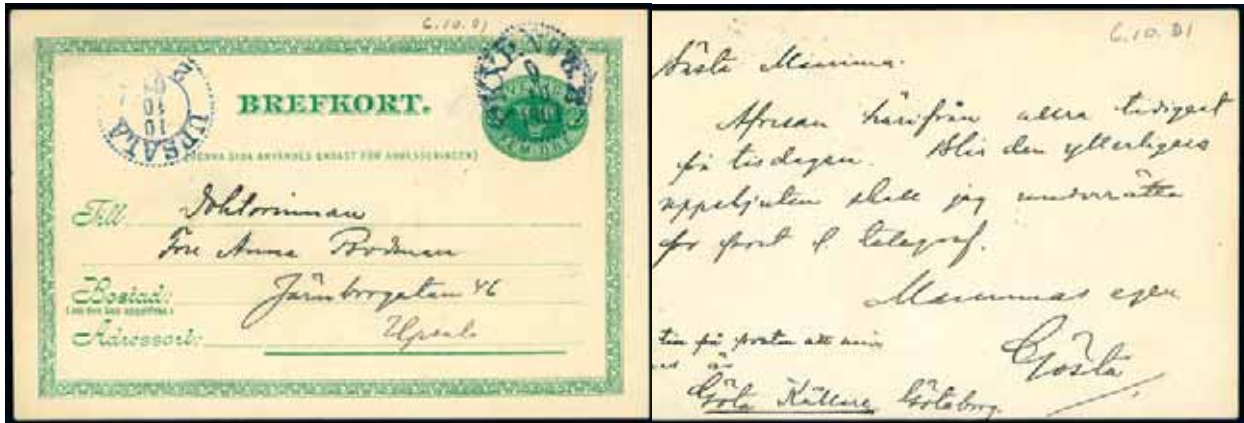 6.10.01
BREFKORT.
(DENNA SIDA ANVÄNDES ENDAST FÖR ADRESSERINGEN)
UPSALA
10
10
PKXP. No 8. B
Till Doktorinnan
Fru Anna Bodman
Bostad: Järnbrogatan 46
Adressort: Upsala
6.10.01
Bästa Mamma.
Afresan härifrån allra tidigast
på tisdagen. Blir den ytterligare
uppskjuten skall jag underrätta
per post l. telegraf.
Mammas egen
Gösta
på posten att min
är
Göta Källare Göteborg.